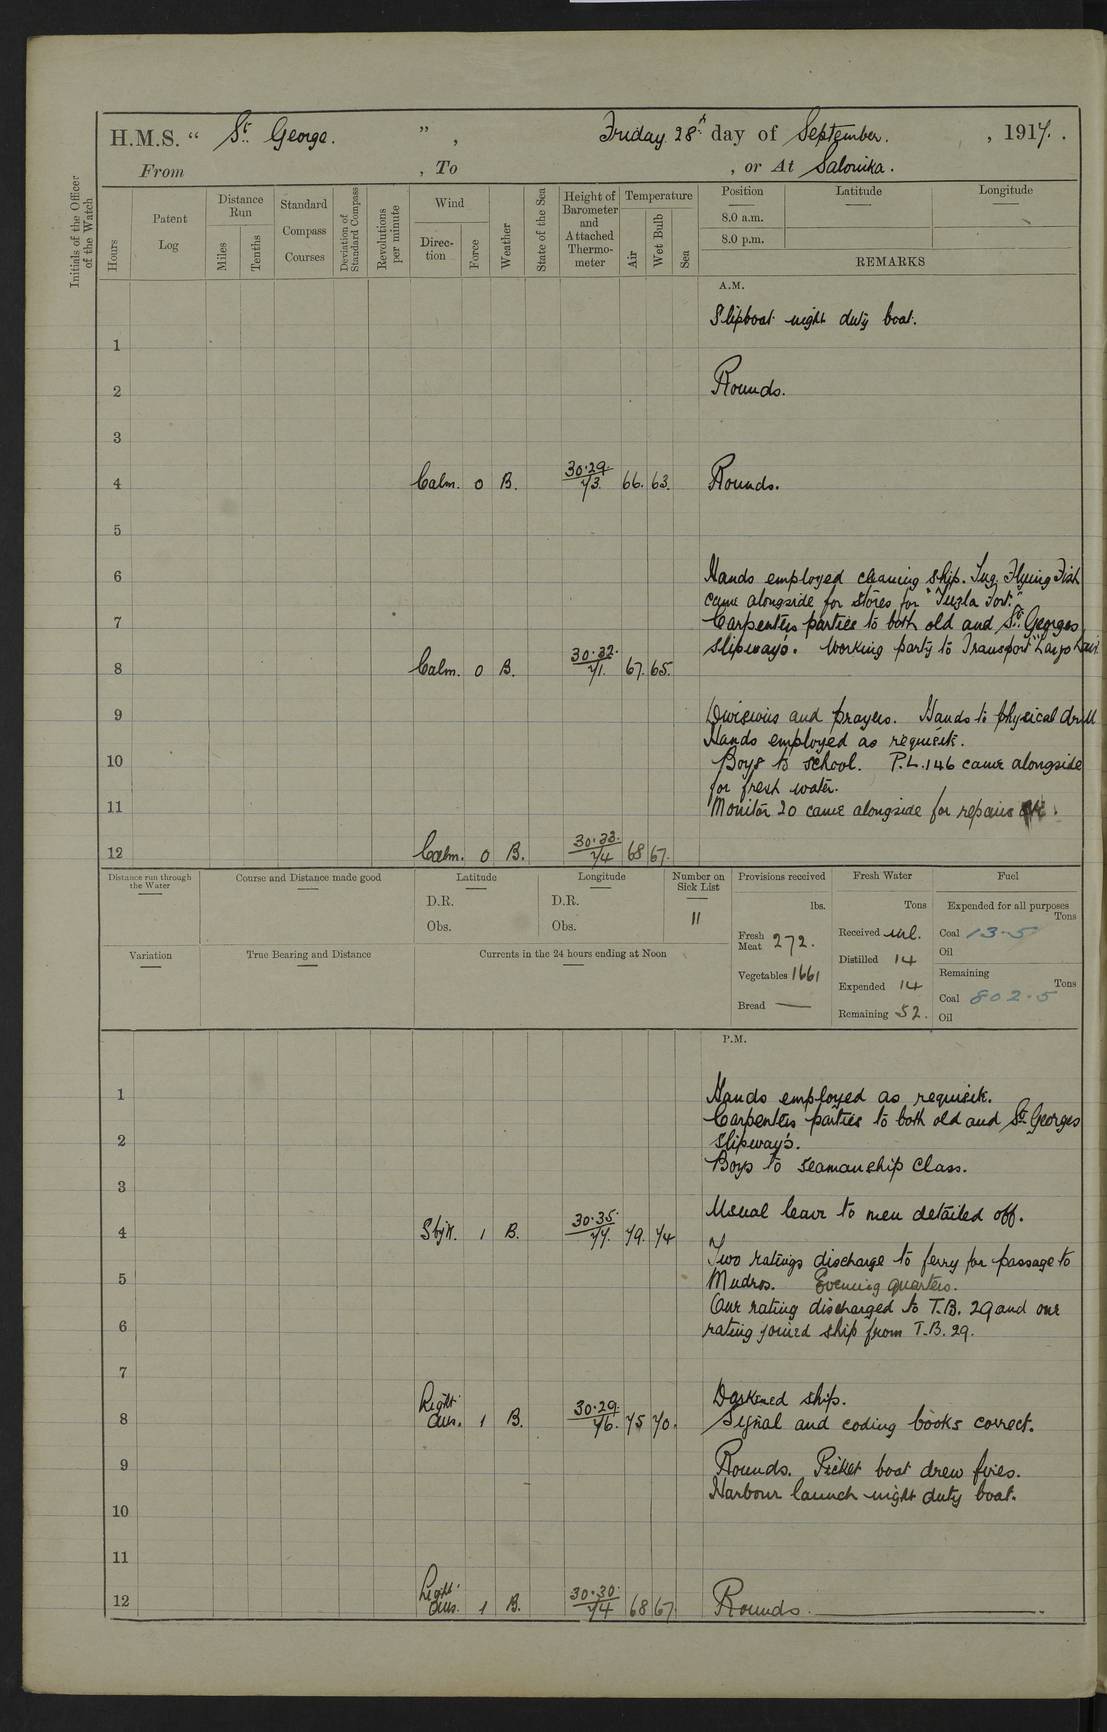 H.M.S. " St. George. ", Friday 28th day of September. , 1917.
From , To , or At Salonika.
Initials of the Officer of the Watch
Hours
Patent Log
Distance Run
Miles
Tenths
Standard Compass Courses
Deviation of Standard Compass
Revolutions per minute
Wind
Direc-tion
Force
Weather
State of the Sea
Height of Barometer and Attached Thermo-meter
Temperature
Air
Wet Bulb
Sea
Position
Latitude
Longitude
8.0 a.m.
8.0 p.m.
REMARKS
A.M.
Slipboat night duty boat.
1
2 Rounds.
3
4 Calm. 0 B. 30.29. 73. 66. 63. Rounds.
5
6 Hands employed cleaning ship. Tug Flying Fish
came alongside for stores for "Tuzla Fort."
7 Carpenters parties to both old and St. Georges
slipway's. Working party to Transport
8 Calm. 0 B. 30.32. 71. 67. 65.
9 Divisions and prayers. Hands to physical drill
Hands employed as requisite.
10 Boys to school. P.L. 146 came alongside
for fresh water.
11 Monitor 20 came alongside for repairs
12 Calm. 0 B. 30.33. 74 68 67.
Distance run through the Water
Course and Distance made good
Latitude
D.R.
Obs.
Longitude
D.R.
Obs.
Number on Sick List
11
Provisions received
lbs.
Fresh Meat 272.
Vegetables 1661
Bread —
Fresh Water
Tons
Received nil.
Distilled 14
Expended 14
Remaining 52.
Fuel
Expended for all purposes
Tons
Coal 13.5
Oil
Remaining
Tons
Coal 802.5
Oil
Variation
True Bearing and Distance
Currents in the 24 hours ending at Noon
P.M.
1 Hands employed as requisite.
Carpenters parties to both old and St. Georges
2 slipway's.
Boys to seamanship class.
3
Usual leave to men detailed off.
4 SbyW. 1 B. 30.35. 77. 79. 74
Two ratings discharge to ferry for passage to
5 Mudros. Evening quarters.
One rating discharged to T.B. 29 and one
6 rating joined ship from T.B. 29.
7
Darkened ship.
8 Light airs. 1 B. 30.29. 76. 75 70. Signal and coding books correct.
9 Rounds. Picket boat drew fires.
Harbour launch night duty boat.
10
11
12 Light airs. 1 B. 30.30. 74 68 67. Rounds.